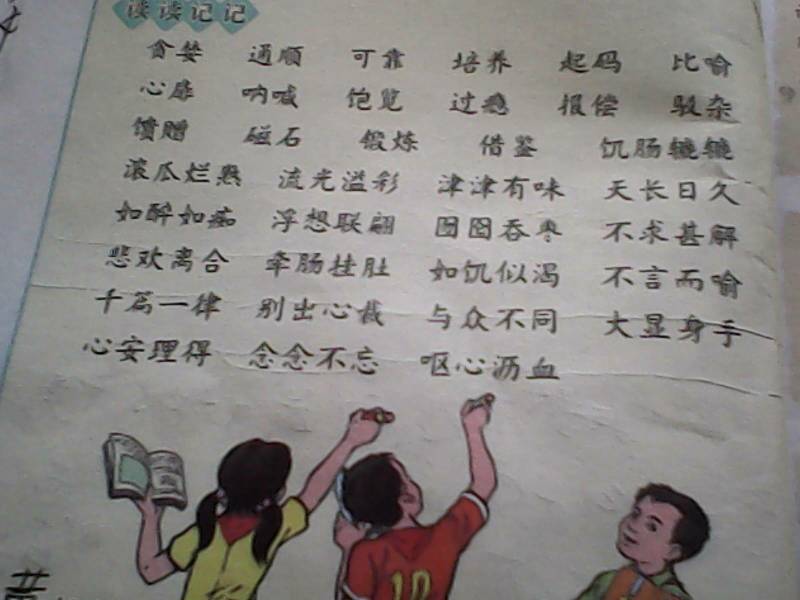 读读记记
贪婪 通顺 可靠 培养 起码 比喻
心扉 呐喊 饱览 过瘾 报偿 驳杂
馈赠 磁石 锻炼 借鉴 饥肠辘辘
滚瓜烂熟 流光溢彩 津津有味 天长日久
如醉如痴 浮想联翩 囫囵吞枣 不求甚解
悲欢离合 牵肠挂肚 如饥似渴 不言而喻
千篇一律 别出心裁 与众不同 大显身手
心安理得 念念不忘 呕心沥血
10